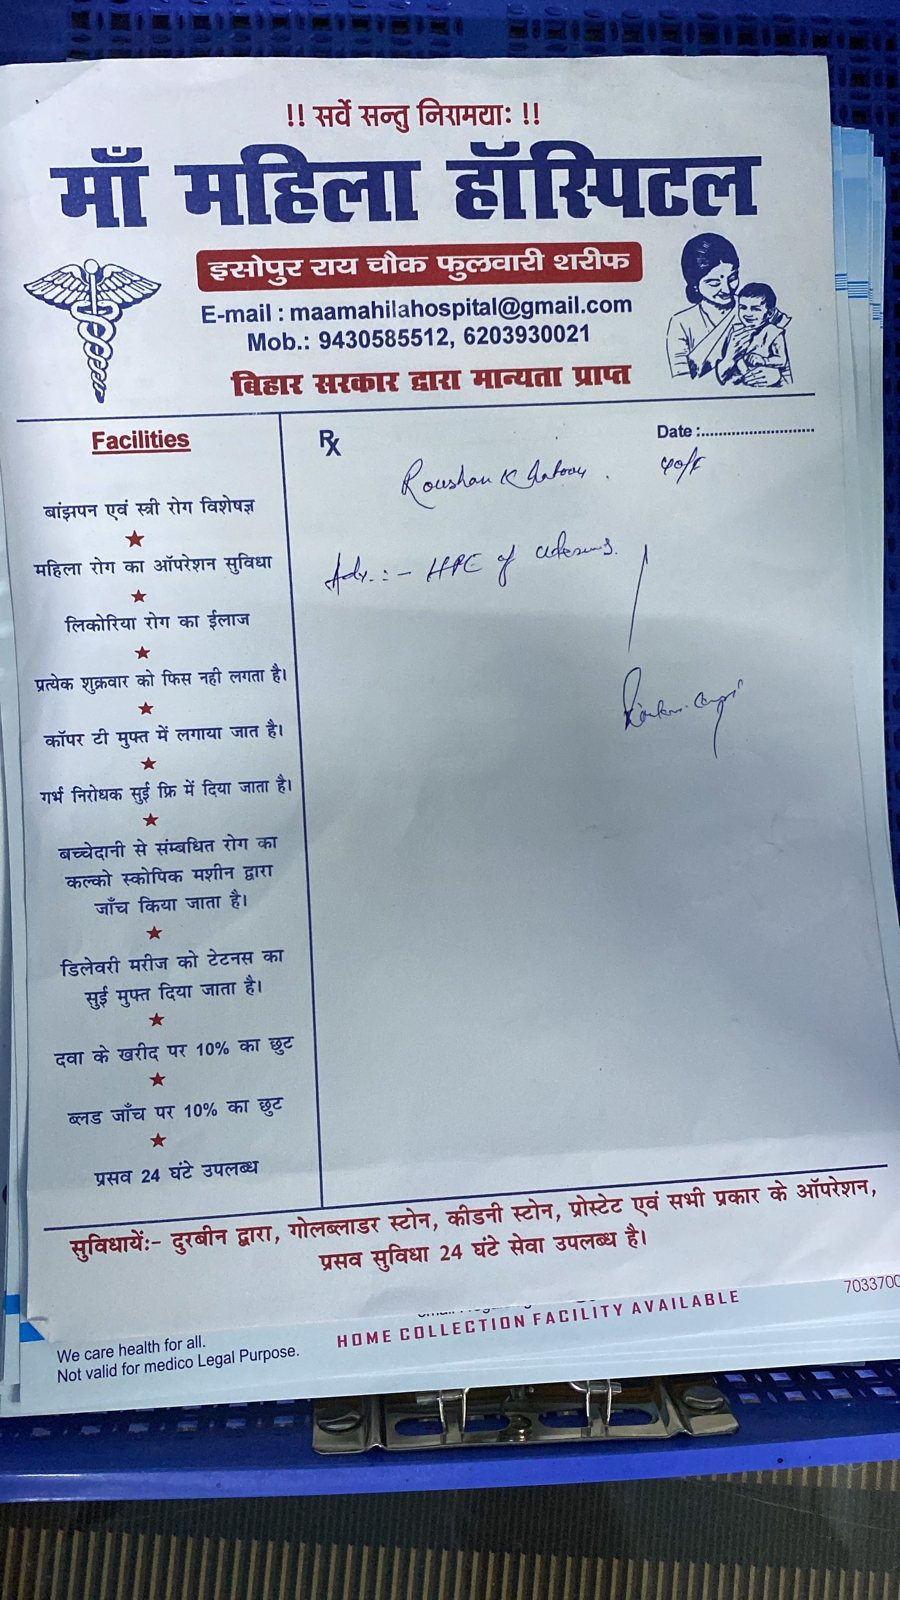 !! सर्वे सन्तु निरामयाः !!
माँ महिला हॉस्पिटल
इसोपुर राय चौक फुलवारी शरीफ
E-mail : maamahilahospital@gmail.com
Mob.: 9430585512, 6203930021
बिहार सरकार द्वारा मान्यता प्राप्त
Facilities
बांझपन एवं स्त्री रोग विशेषज्ञ
महिला रोग का ऑपरेशन सुविधा
लिकोरिया रोग का ईलाज
प्रत्येक शुक्रवार को फिस नही लगता है।
कॉपर टी मुफ्त में लगाया जात है।
गर्भ निरोधक सुई फ्रि में दिया जाता है।
बच्चेदानी से संम्बधित रोग का
कल्को स्कोपिक मशीन द्वारा
जाँच किया जाता है।
डिलेवरी मरीज को टेटनस का
सुई मुफ्त दिया जाता है।
दवा के खरीद पर 10% का छुट
ब्लड जाँच पर 10% का छुट
प्रसव 24 घंटे उपलब्ध
Rx
Date :............................
Roushan Khatoon. 40/F
Adv. :- HPE of uterus.
सुविधायेंः- दुरबीन द्वारा, गोलब्लाडर स्टोन, कीडनी स्टोन, प्रोस्टेट एवं सभी प्रकार के ऑपरेशन,
प्रसव सुविधा 24 घंटे सेवा उपलब्ध है।
7033700
HOME COLLECTION FACILITY AVAILABLE
We care health for all.
Not valid for medico Legal Purpose.